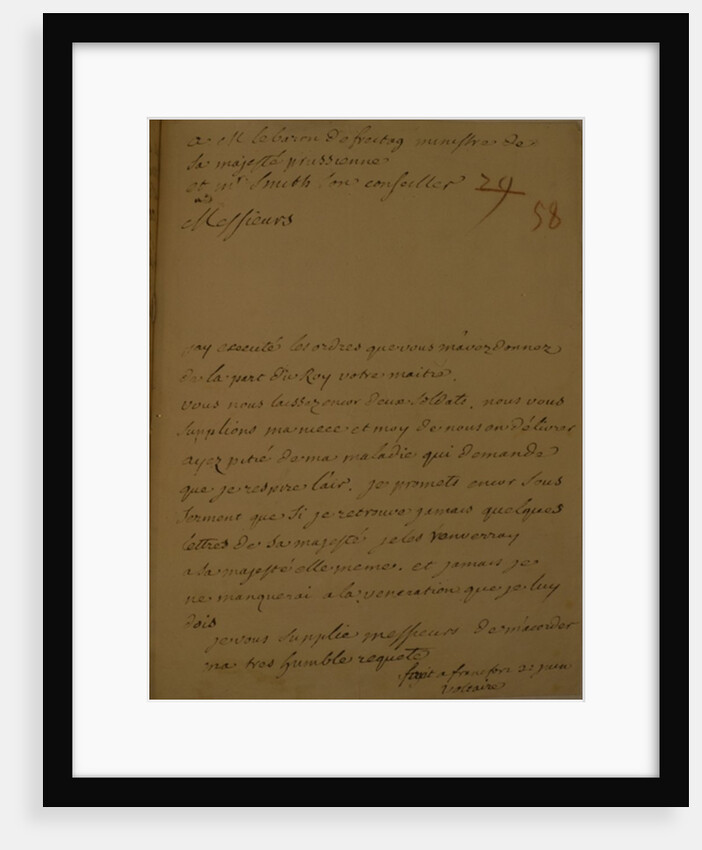 a M le baron de freitag ministre de
sa majesté prussienne
et mr Smith son conseiller 29
58
Messieurs
jay executé les ordres que vous m'avez donnez
de la part du Roy votre maitre.
vous nous laissez encor deux soldats, nous vous
supplions ma niece et moy de nous en délivrer
ayez pitié de ma maladie qui demande
que je respire l'air. je promets encor sous
serment que si je retrouve jamais quelques
lettres de sa majesté je les renverray
a sa majesté elle meme. et jamais je
ne manquerai a la veneration que je luy
dois
je vous supplie messieurs de m'acorder
ma tres humble requete
fait a francfort 21 juin
Voltaire